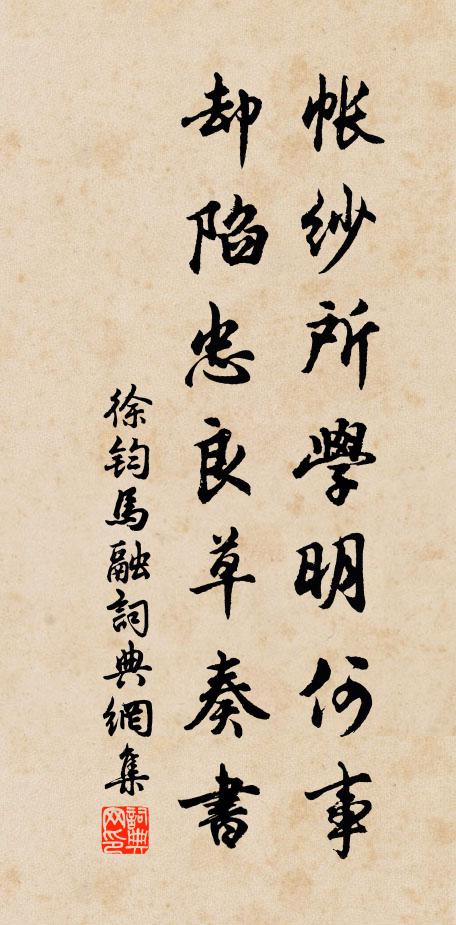 帳紗所學明何事
却陷忠良草奏書
徐鈞馬融詞典網集
詞典網印